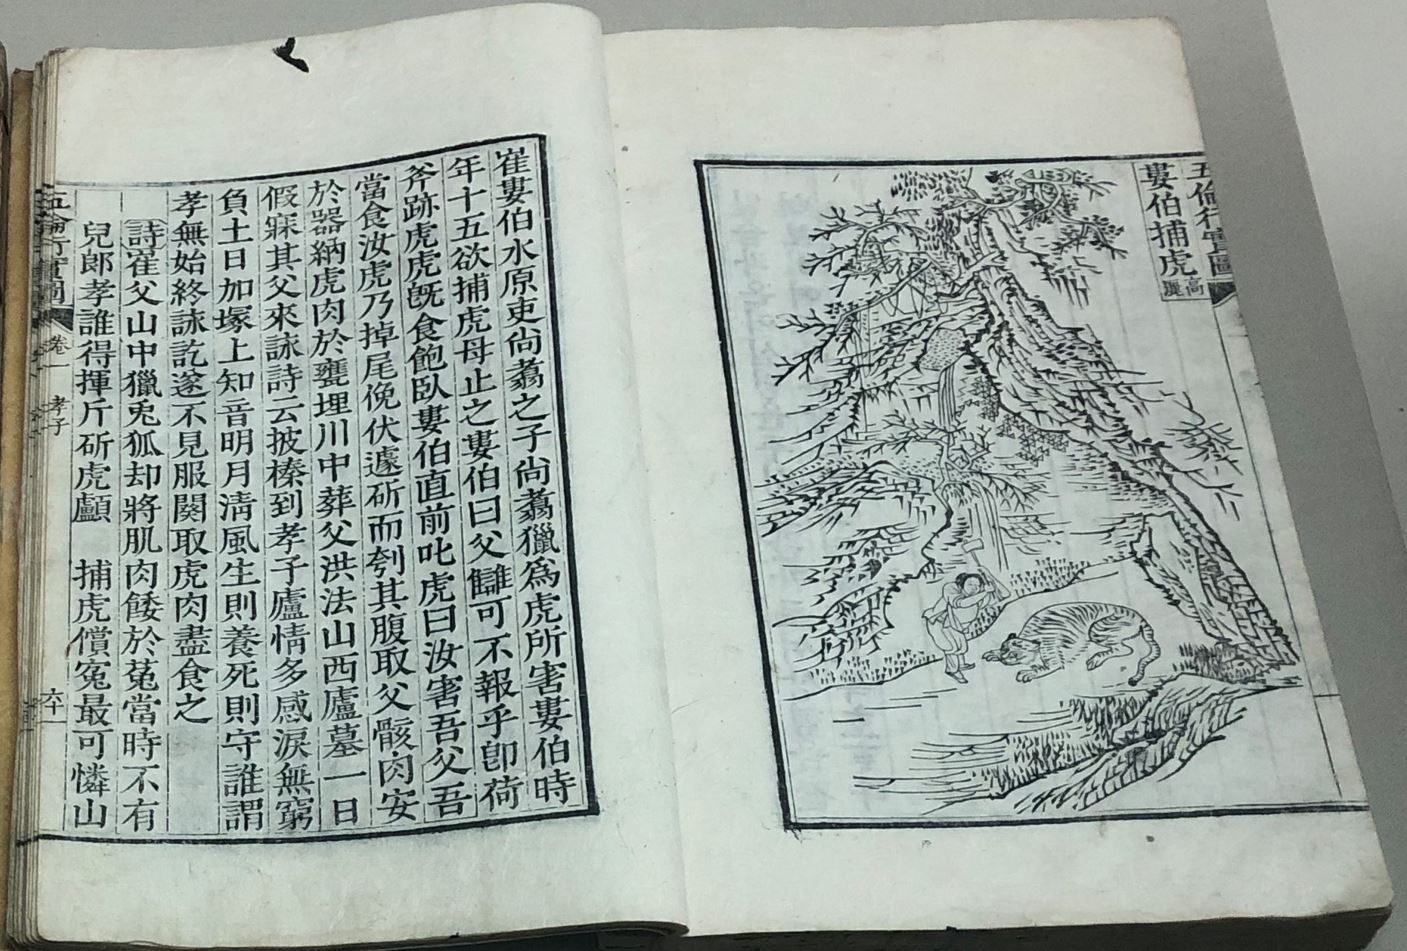 五倫行實圖
婁伯捕虎 高麗
崔婁伯水原吏尙翥之子尙翥獵爲虎所害婁伯時
年十五欲捕虎母止之婁伯曰父讎可不報乎卽荷
斧跡虎虎旣食飽臥婁伯直前叱虎曰汝害吾父吾
當食汝虎乃掉尾俛伏遽斫而刳其腹取父骸肉安
於器納虎肉於甕埋川中葬父洪法山西廬墓一日
假寐其父來詠詩云披榛到孝子廬情多感淚無窮
負土日加塚上知音明月淸風生則養死則守誰謂
孝無始終詠訖遂不見服闋取虎肉盡食之
詩崔父山中獵兎狐却將肌肉餧於菟當時不有
兒郞孝誰得揮斤斫虎顱 捕虎償冤最可憐山
五倫行實圖 卷一 孝子 六十